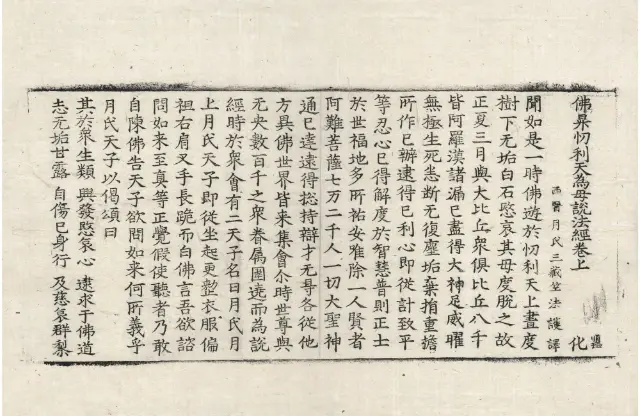 佛昇忉利天為母說法經卷上
化
西晉月氏三藏竺法護譯
聞如是一時佛遊於忉利天上晝度
樹下无垢白石愍哀其母度脫之故
正夏三月與大比丘衆俱比丘八千
皆阿羅漢諸漏已盡得大神足威曜
無極生死悉斷无復塵垢棄捐重擔
所作已辦逮得己利心即從計致平
等忍心已得解度於智慧普則正士
於世福地多所祐安唯除一人賢者
阿難菩薩七万二千人一切大聖神
通已達逮得捴持辯才无㝵各從他
方異佛世界皆來集會尒時世尊與
无央數百千之衆眷屬圍遶而為說
經時於衆會有二天子名日月氏月
上月氏天子即從坐起更整衣服偏
袒右肩叉手長跪而白佛言吾欲諮
問如來至真等正覺假使聽者乃敢
自陳佛告天子欲問如來何所義乎
月氏天子以偈頌曰
其於衆生類 興發愍哀心 逮求于佛道
志无垢甘露 自傷己身行 及慈哀群黎